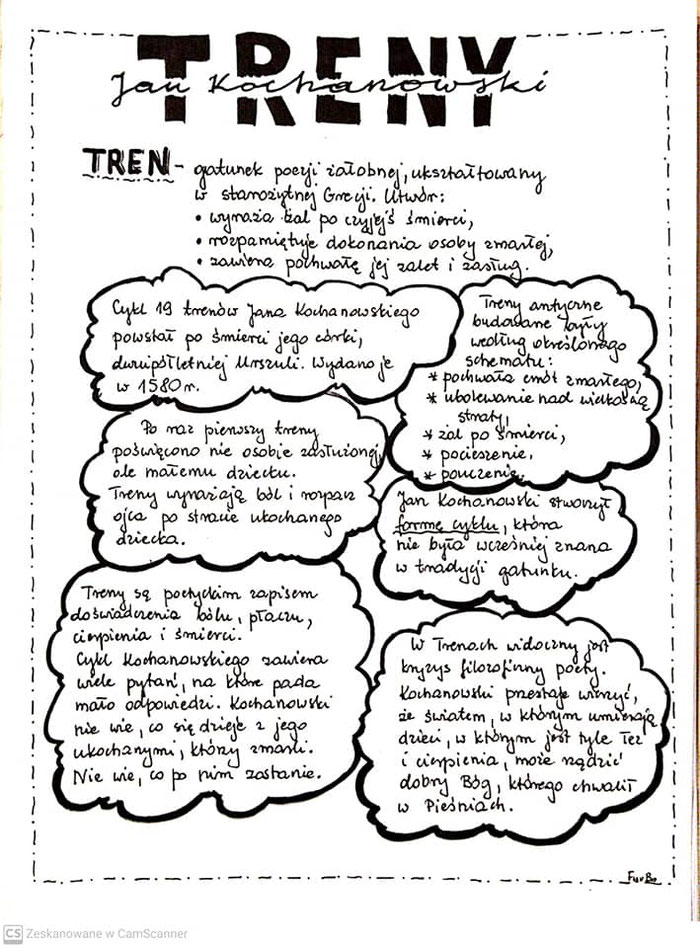 TRENY
Jan Kochanowski
TREN - gatunek poezji żałobnej, ukształtowany
w starożytnej Grecji. Utwór:
• wyraża żal po czyjejś śmierci,
• rozpamiętuje dokonania osoby zmarłej,
• zawiera pochwałę jej zalet i zasług.
Cykl 19 trenów Jana Kochanowskiego
powstał po śmierci jego córki,
dwuipółletniej Urszuli. Wydano je
w 1580 r.
Treny antyczne
budowane były
według określonego
schematu:
* pochwała cnót zmarłego,
* ubolewanie nad wielkością
straty,
* żal po śmierci,
* pocieszenie,
* pouczenie.
Po raz pierwszy treny
poświęcono nie osobie zasłużonej,
ale małemu dziecku.
Treny wyrażają ból i rozpacz
ojca po stracie ukochanego
dziecka.
Jan Kochanowski stworzył
formę cyklu, która
nie była wcześniej znana
w tradycji gatunku.
Treny są poetyckim zapisem
doświadczenia bólu, płaczu,
cierpienia i śmierci.
Cykl Kochanowskiego zawiera
wiele pytań, na które pada
mało odpowiedzi. Kochanowski
nie wie, co się dzieje z jego
ukochanymi, którzy zmarli.
Nie wie, co po nim zostanie.
W Trenach widoczny jest
kryzys filozoficzny poety.
Kochanowski przestaje wierzyć,
że światem, w którym umierają
dzieci, w którym jest tyle łez
i cierpienia, może rządzić
dobry Bóg, którego chwalił
w Pieśniach.
CS Zeskanowane w CamScanner